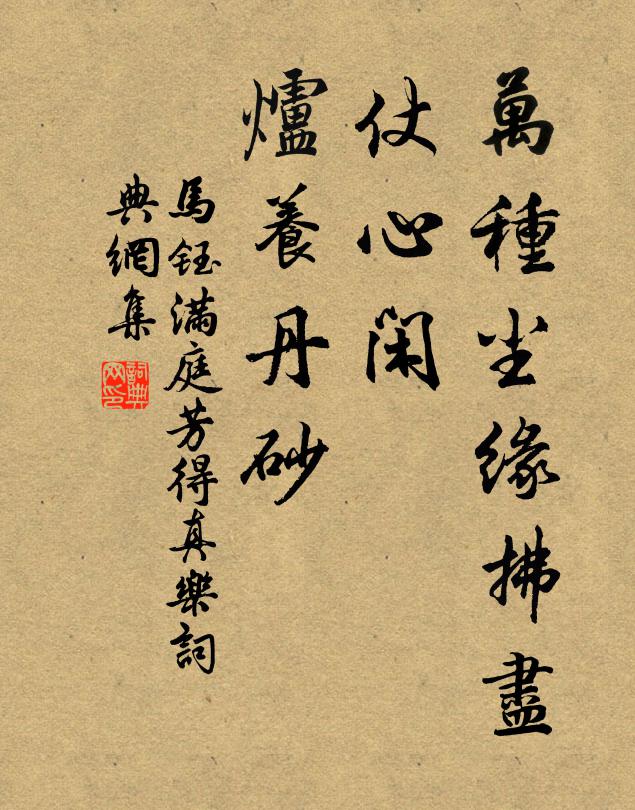 萬種尘緣拂盡
仗心閑
爐養丹砂
馬鈺满庭芳得真樂詞
典網集
詞典
网印